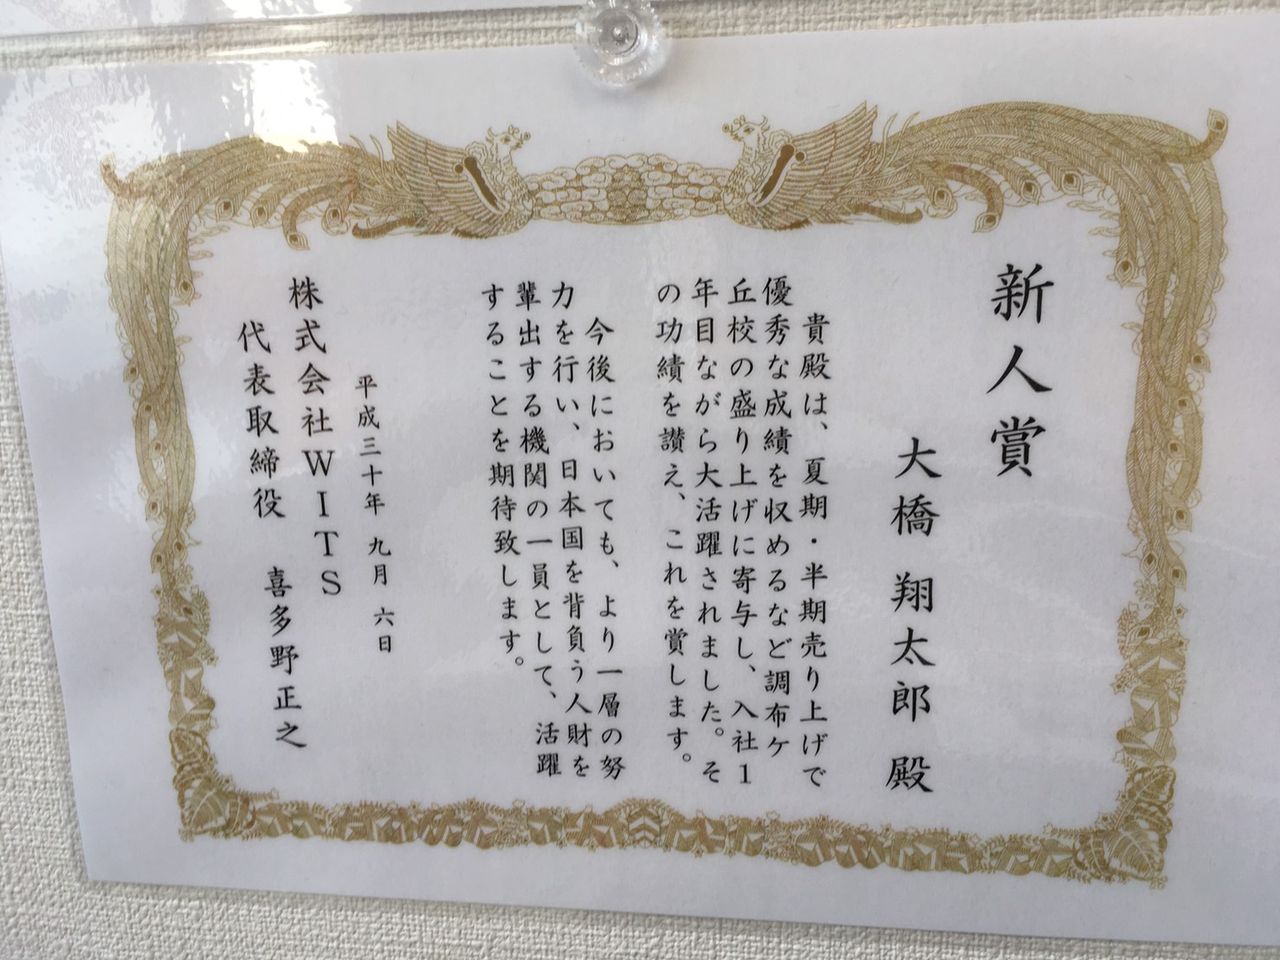 新人賞
大橋 翔太郎 殿
貴殿は、夏期・半期売り上げで
優秀な成績を収めるなど調布ケ
丘校の盛り上げに寄与し、入社1
年目ながら大活躍されました。そ
の功績を讃え、これを賞します。
今後においても、より一層の努
力を行い、日本国を背負う人財を
輩出する機関の一員として、活躍
することを期待致します。
平成三十年 九月 六日
株式会社WITS
代表取締役 喜多野正之